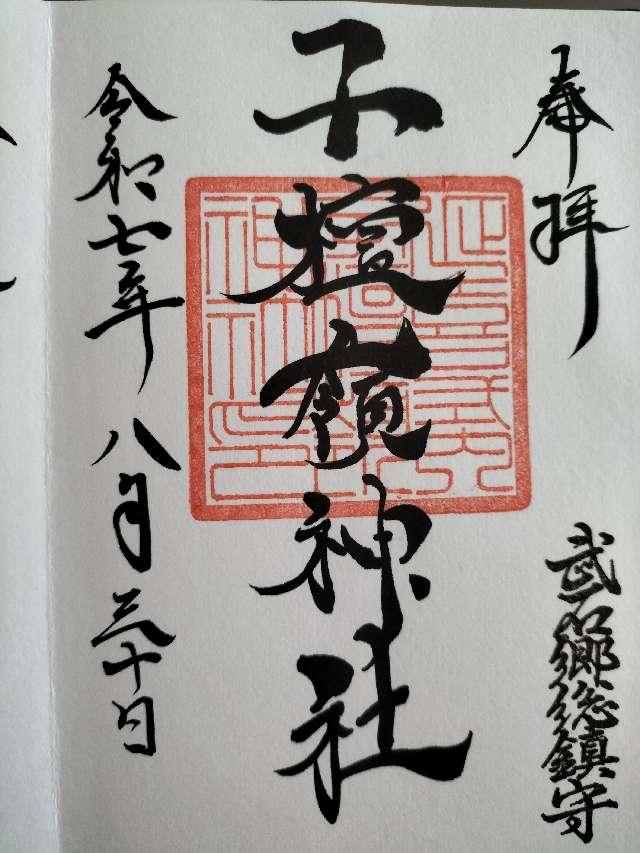 奉拝
武石郷総鎮守
子檀嶺神社
令和七年八月三十日